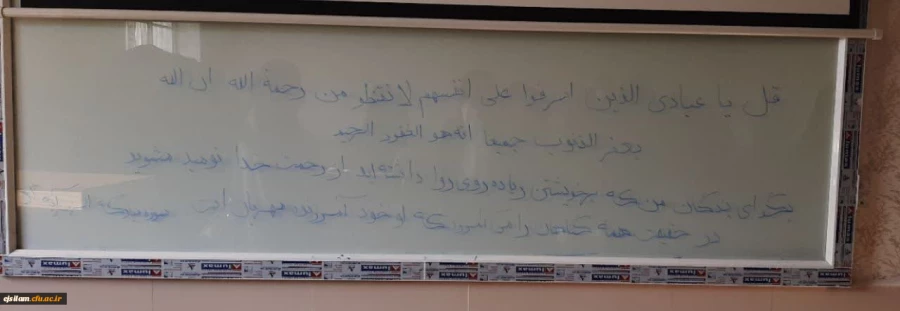 قل یا عبادی الذین اسرفوا علی انفسهم لا تقنطو من رحمة الله ان الله
یغفر الذنوب جمیعا انه هو الغفور الرحیم
بگو ای بندگان من که بر خویشتن زیاده روی روا داشته اید از رحمت خدا نومید مشوید
در حقیقت همه گناهان را می آمرزد که او خود آمرزنده مهربان است
fumax
ejsilam.cfu.ac.ir